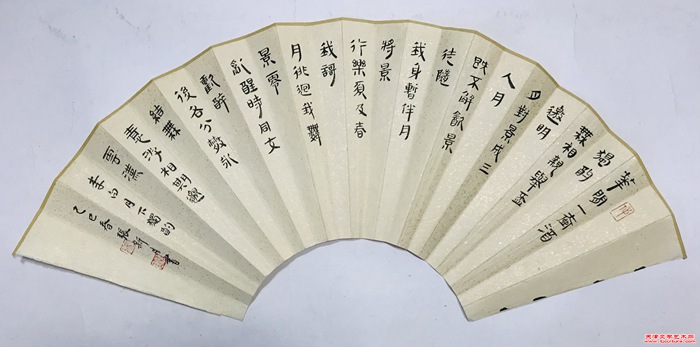 華間一壺酒
獨酌
無相親舉盃
邀明
月對景成三
人月
既不解飲景
徒隨
我身暫伴月
將景
行樂須及春
我謌
月徘徊我舞
景零
亂醒時同交
歡醉
後各分散永
結無
情遊相期邈
雲漢
李白月下獨酌
乙巳春張
天津文学艺术网